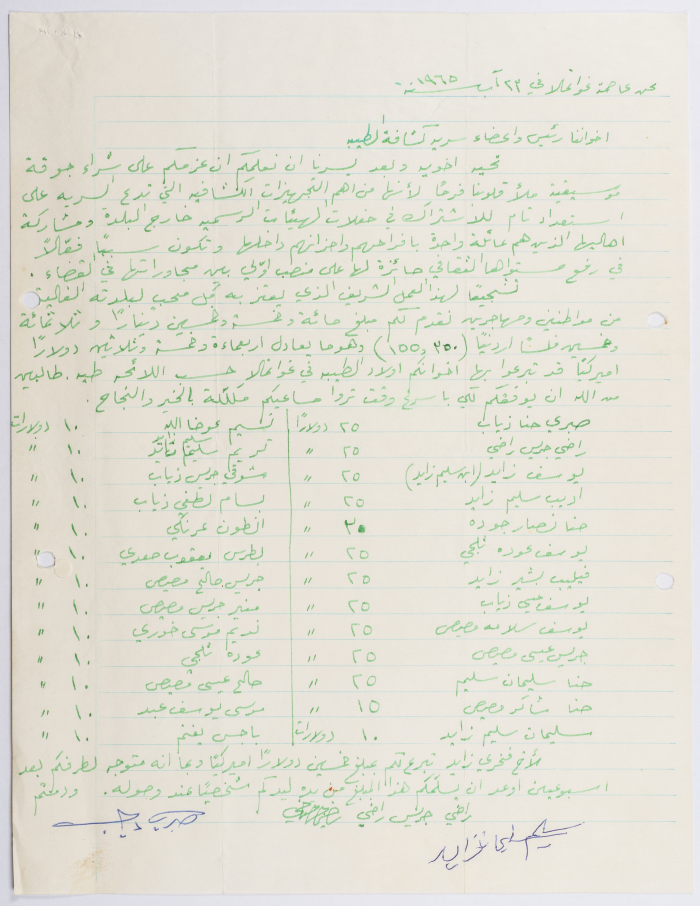 عاصمة غواتمالا في ٢٣ آب سنة ١٩٦٥
اخواننا رئيس واعضاء سرية كشافة الطيبه
تحيه اخويه وبعد يسرنا ان نعلمكم ان عزمكم على شراء جوقة
موسيقية ملأ قلوبنا فرحًا لأنها من اهم التجهيزات الكشافيه التي تدع السريه على
استعداد تام للاشتراك في حفلات الرسميه خارج البلدة ومشاركة
اهاليها الذين هم عائلة واحدة بافراحهم واحزانهم داخلها وتكون سببًا فعّالًا
في رفع مستواها الثقافي حائزة لها على منصب اوّلي بين مجاوراتها في القضاء .
تشجيعًا لهذا العمل الشريف الذي يعتز به كل محب لبلدته الغالية
من مواطنين ومهاجرين نقدم لكم مبلغ مائة وخمسة وخمسين دينارًا وثلاثمائة
وخمسين فلسًا اردنيًا (١٥٥,٣٥٠) وهو ما يعادل اربعماية وخمسة وثلاثين دولارًا
اميركيًا قد تبرعوا بها اخوانكم اولاد الطيبه في غواتمالا حسب اللائحه طيه . طالبين
من الله ان يوفقكم لكي باسرع وقت تروا مساعيكم مكللة بالخير والنجاح .
صبري حنا ذياب ٢٥ دولارًا نسيم عوض الله ١٠ دولارات
راضي جريس راضي ٢٥ " كريم سليم زايد ١٠ "
يوسف زايد (ابن سليم زايد) ٢٥ " شوقي جريس ذياب ١٠ "
اديب سليم زايد ٢٥ " بسام لطفي ذياب ١٠ "
حنا نصار جوده ٣٠ " انطون عرنكي ١٠ "
يوسف عوده ثلجي ٢٥ " بطرس يعقوب ١٠ "
فيليب بشير زايد ٢٥ " جريس صالح مصيص ١٠ "
يوسف عيسى ذياب ٢٥ " منير جريس مصيص ١٠ "
يوسف سلامه مصيص ٢٥ " نديم موسى خوري ١٠ "
جريس عيسى مصيص ٢٥ " عودة ثلجي ١٠ "
حنا سليمان سليم ٢٥ " صالح عيسى مصيص ١٠ "
حنا شاكر مصيص ١٥ " موسى يوسف عبد ١٠ "
سليمان سليم زايد ١٠ دولارات باجس يغنم ١٠ "
الاخ فخري زايد تبرع لكم بمبلغ خمسين دولارًا اميركيًا وبما انه متوجه لطرفكم بعد
اسبوعين اوعد ان يسلمكم هذا المبلغ من يده ليدكم شخصيًا عند وصوله . ودمتم
راضي جريس راضي
صبري ذياب
سليم سليمان زايد